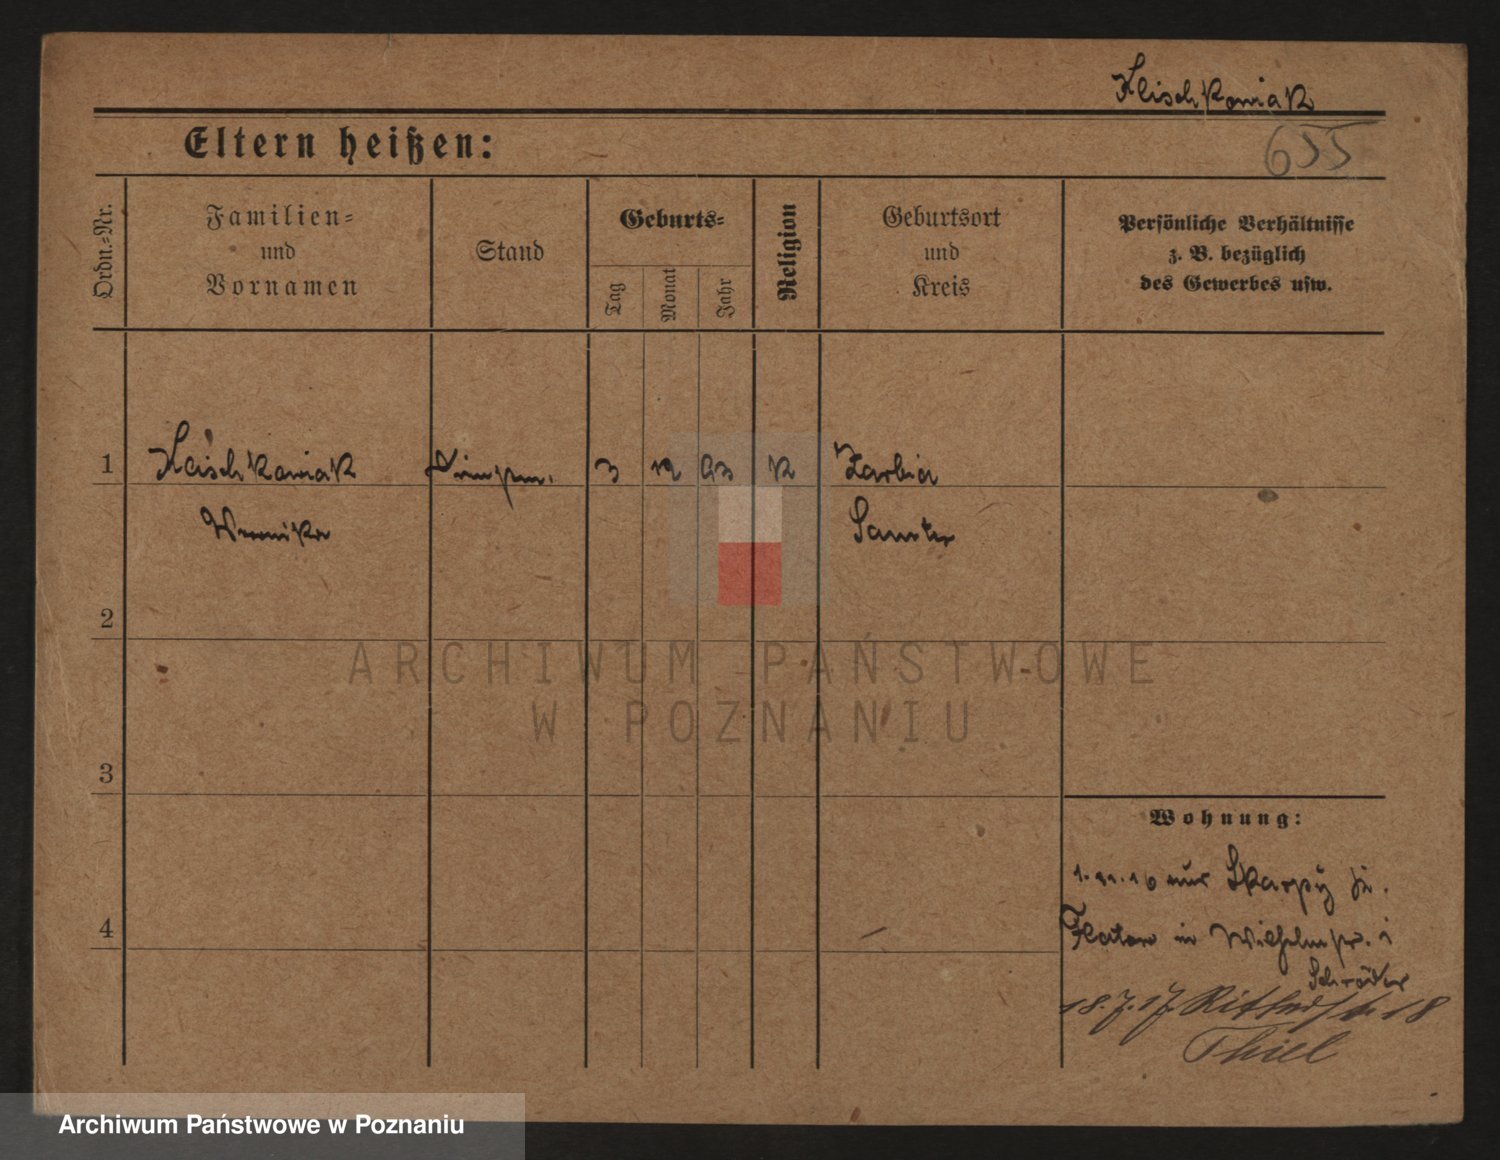 Kleischkowiak
655
Eltern heißen:
Ordn.-Nr.
Familien-
und
Vornamen
Stand
Geburts-
Tag
Monat
Jahr
Religion
Geburtsort
und
Kreis
Persönliche Verhältnisse
z. B. bezüglich
des Gewerbes usw.
1
3 12 93 K
Samter
2
3
4
Wohnung:
1.11.16 aus
Flatow in
Schröder
18.7.17. 18
Thiel
ARCHIWUM PAŃSTWOWE
W POZNANIU
Archiwum Państwowe w Poznaniu